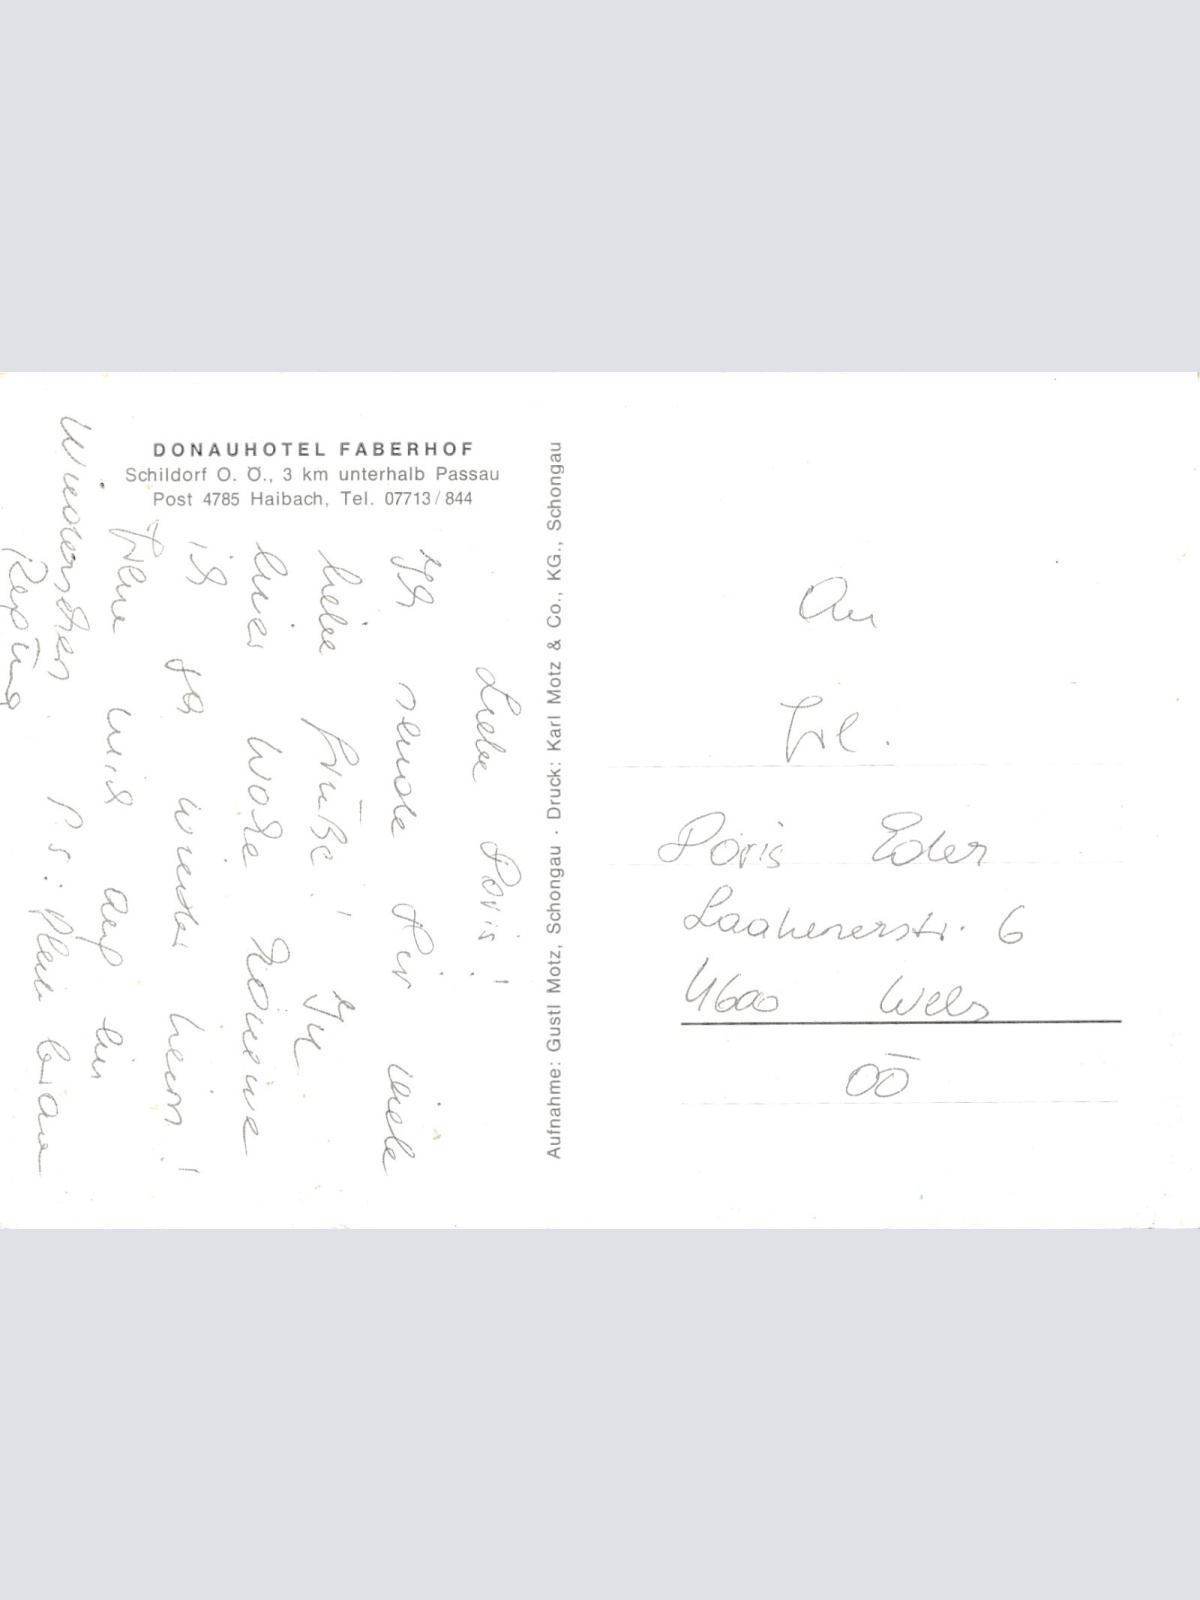 DONAUHOTEL FABERHOF
Schildorf O. Ö., 3 km unterhalb Passau
Post 4785 Haibach, Tel. 07713/844
Liebe Doris!
Ich sende Dir viele
liebe Grüße! In
einer Woche komme
ich wieder heim!
Freue mich auf ein
Wiedersehen P.S:
Aufnahme: Gustl Motz, Schongau · Druck: Karl Motz & Co., KG., Schongau
An
Frl.
Doris Eder
6
4600 Wels
OÖ